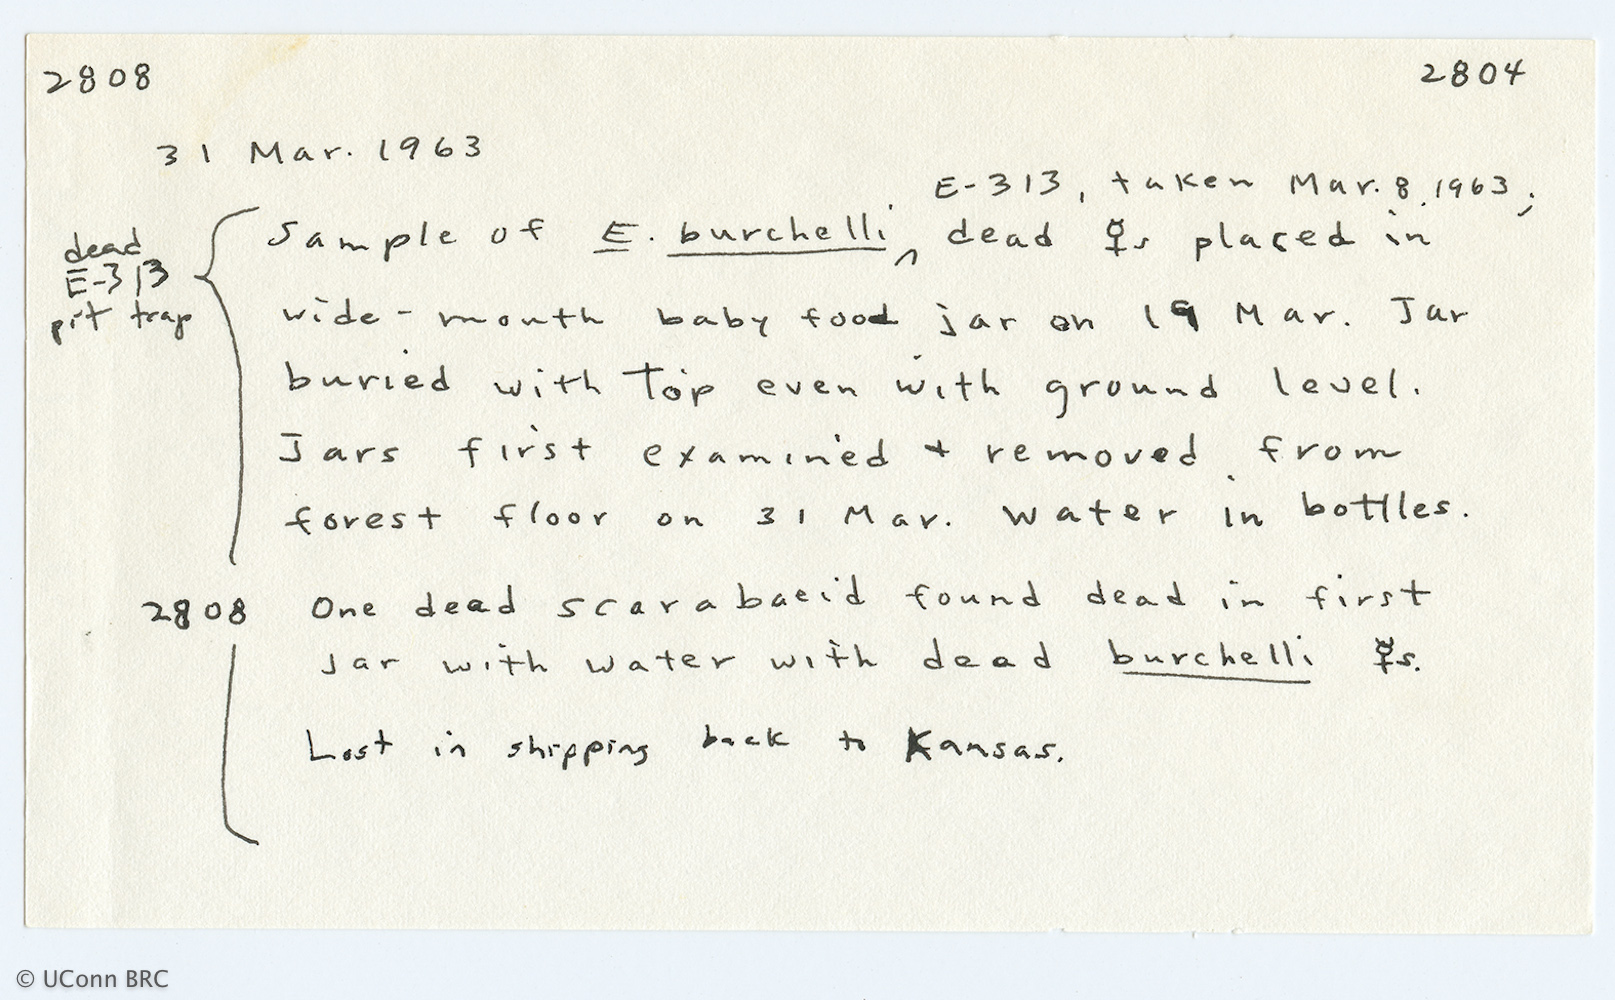 2808 2804
31 Mar. 1963
E-313, taken Mar. 8, 1963;
Sample of E. burchelli ^ dead ☿s placed in
dead
E-313
pit trap
wide-mouth baby food jar on 19 Mar. Jar
buried with Top even with ground level.
Jars first examined + removed from
forest floor on 31 Mar. Water in bottles.
2808 One dead scarabaeid found dead in first
Jar with water with dead burchelli ☿s.
Lost in shipping back to Kansas.
© UConn BRC